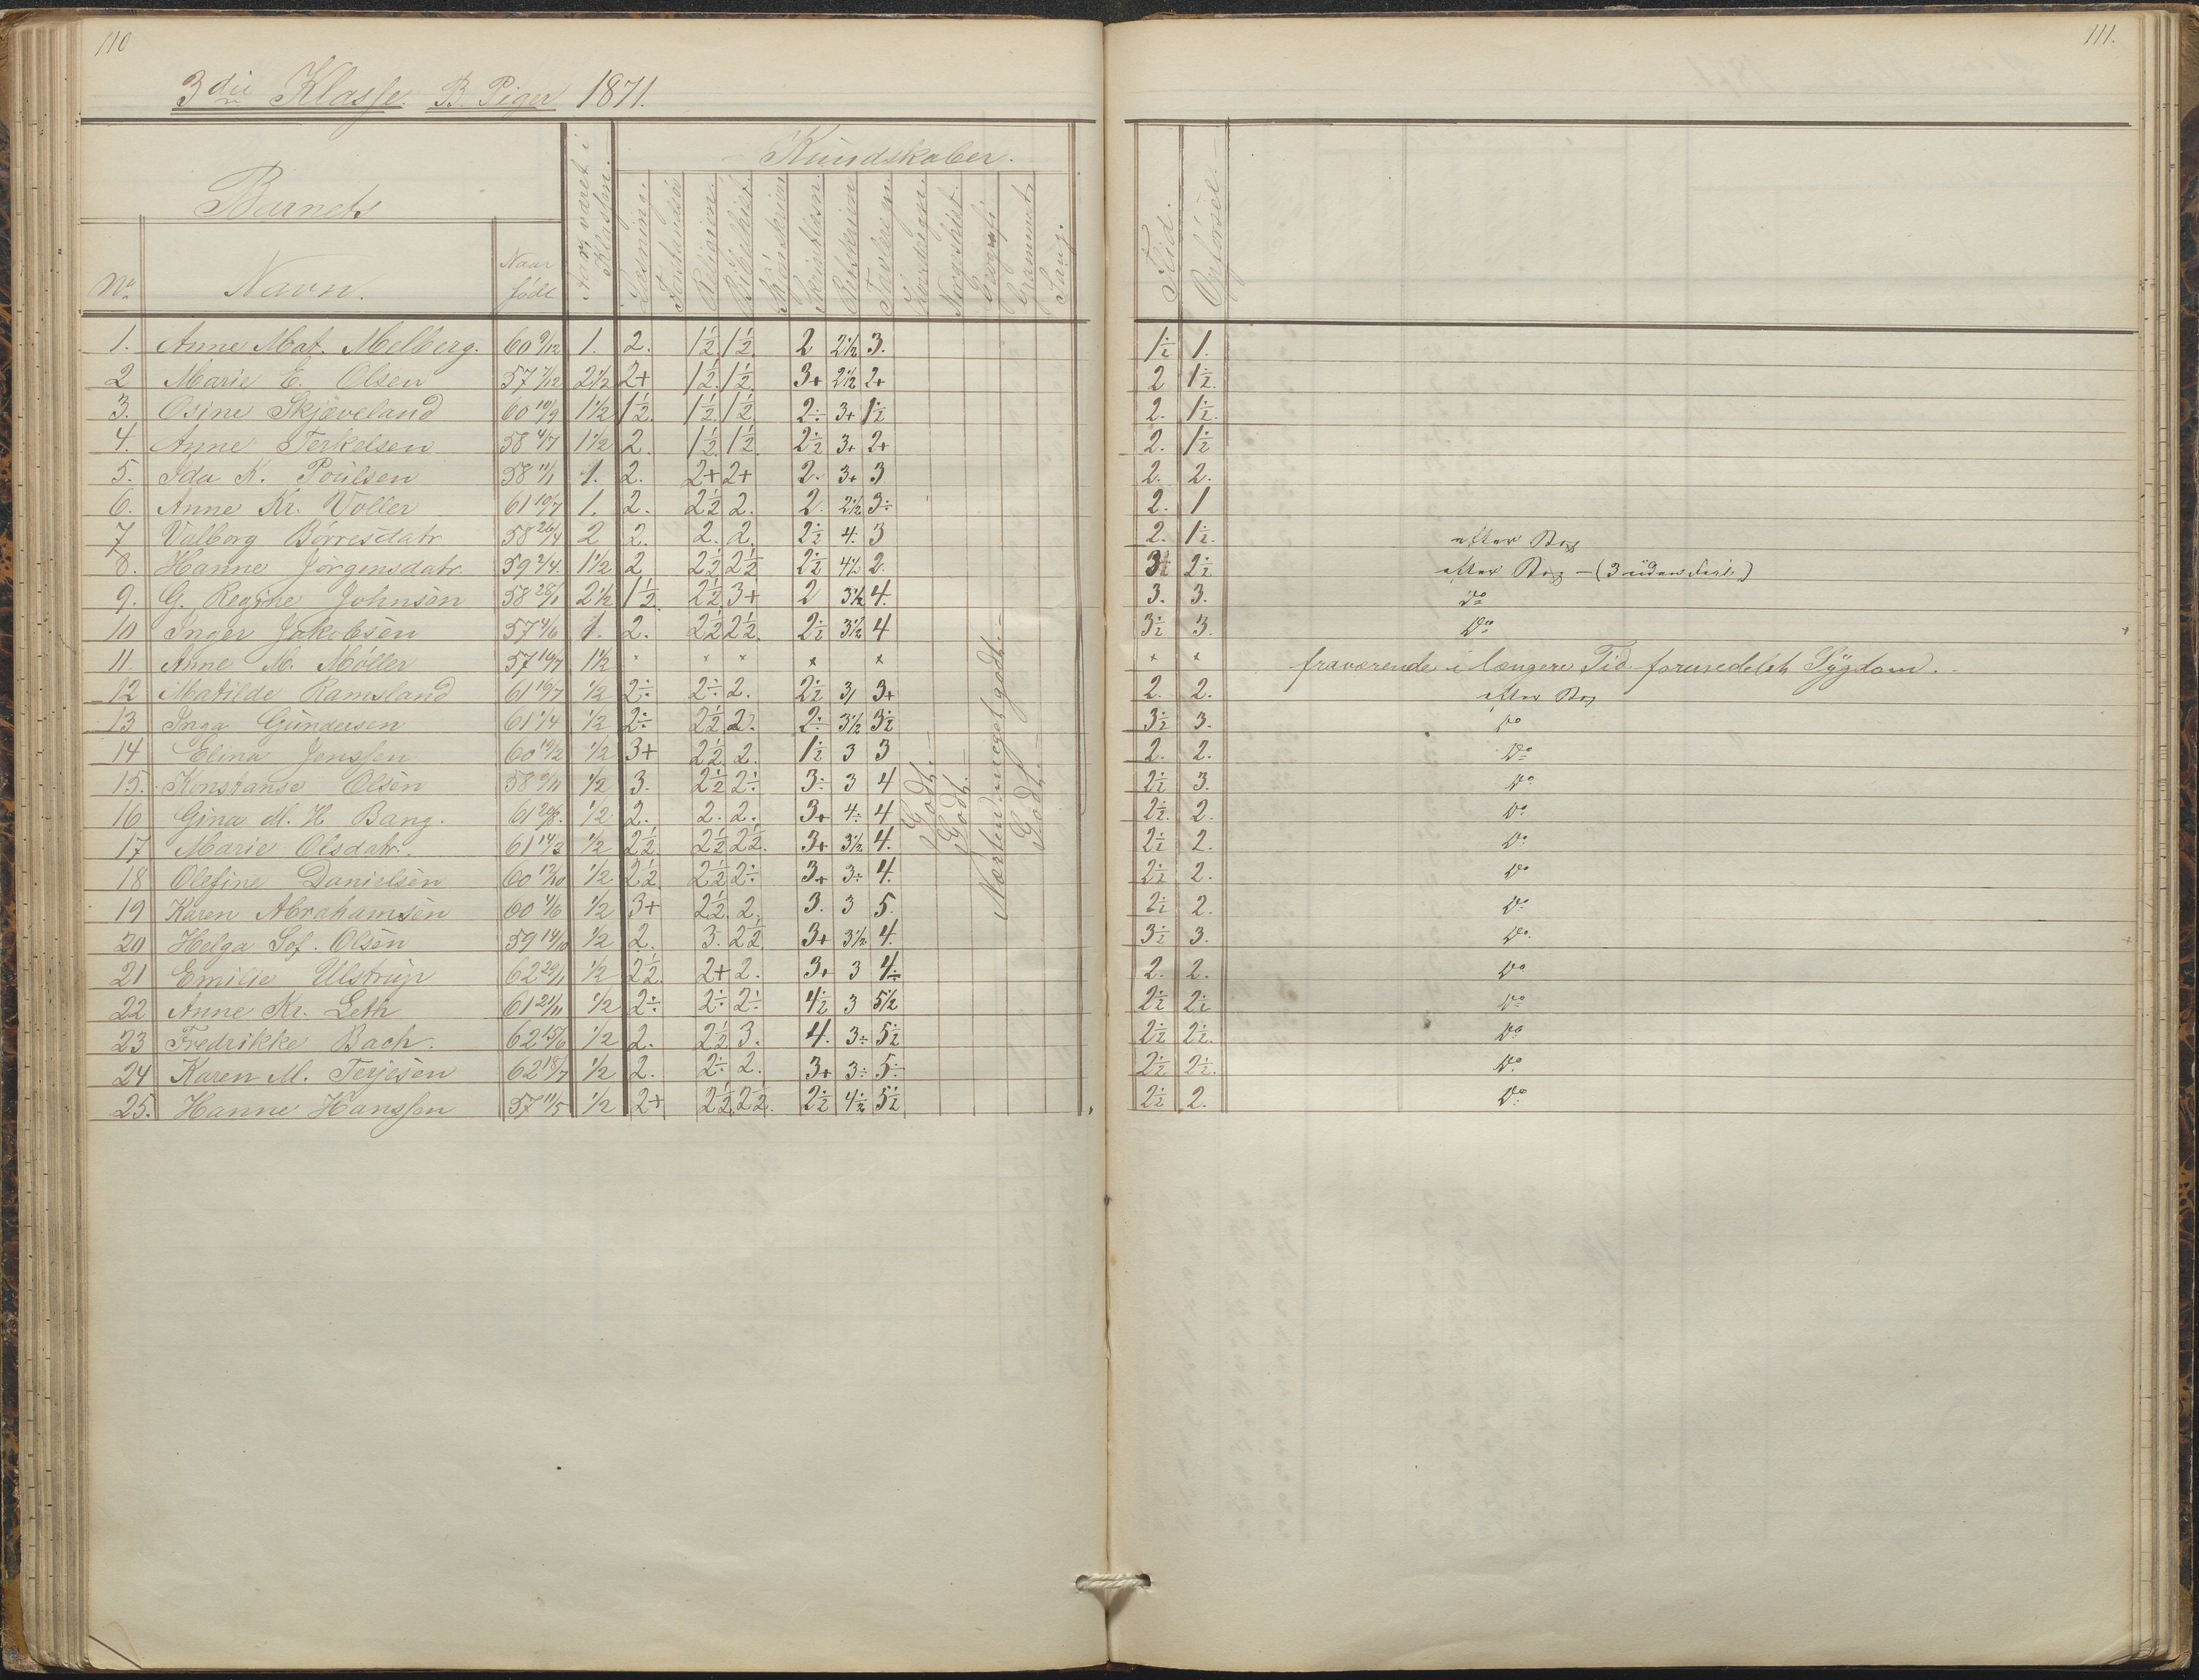 110
111.
3die Klasse. B. Piger 1871.
Barnets
Kundskaber.
No Navn. Naar født Aar været i Klassen. Læsning. Forstandsø Religion. Bibelhist. Skjønskrivn Retskrivn Tavleregn. Hovedregn. Norgeshist. Geografi Grammat. Sang. Flid. Opførsel.
1. Anne Mat. Melberg. 60 9/12 1. 2. 1½ 1½ 2 2½ 3. 1½ 1.
2 Marie E. Olsen 57 7/12 2½ 2+ 1½ 1½ 3+ 2½ 2+ 2 1½.
3. Osine Skjæveland 60 10/9 1½ 1½ 1½ 1½ 2÷ 3+ 1½ 2. 1½.
4. Anne Terkelsen 58 4/7 1½ 2. 1½ 1½ 2½ 3+ 2+ 2. 1½
5. Ida K. Poulsen 58 11/1 1. 2. 2+ 2+ 2. 3+ 3 2. 2.
6. Anne Kr. Voller 61 10/7 1. 2. 2½ 2. 2. 2½ 3÷ 2. 1
7 Valborg Børresdatr 58 26/4 2 2. 2. 2. 2½ 4. 3 2. 1½. efter Bog
8. Hanne Jørgensdatr. 59 2/4. 1½ 2 2½ 2½ 2½ 4½ 2. 3½ 2½ efter Bog - (3 uden Feil)
9. G. Regine Johnsen 58 28/1 2½ 1½ 2½ 3+ 2 3½ 4. 3. 3. Do
10 Inger Jakobsen 57 4/6 1. 2. 2½ 2½. 2½ 3½ 4 3½ 3. Do
11. Anne M. Møller 57 16/7 1½ × × × × × × × fraværende i længere Tid formedelst Sygdom.
12 Matilde Ramsland 61 16/7 ½ 2÷ 2÷ 2. 2½ 3/ 3+ 2. 2. efter Bog
13 Inga Gundersen 61 1/4 ½ 2÷ 2½ 2. 2÷ 3½ 3½ 3½ 3. Do
14 Elina Jenssen 60 19/2 ½ 3+ 2½ 2. 1½ 3 3 2. 2. Do
15. Konstanse Olsen 58 9/11 ½ 3. 2½ 2÷ 3÷ 3 4 2½ 3. Do
16 Gina M. H Bang. 61 29/8. ½ 2. 2. 2. 3+ 4÷ 4 2½. 2. Do
17 Marie Olsdatr. 61 14/3 ½ 2½ 2½ 2½. 3+ 3½ 4. 2½ 2. Do
18 Olefine Danielsen 60 13/10 ½ 2½ 2½ 2÷ 3+ 3÷ 4. 2½ 2. Do
19 Karen Abrahamsen 60 4/6 ½ 3+ 2½. 2. 3. 3 5. 2½ 2. Do
20 Helga Sof. Olsen 59 14/10 ½ 2. 3. 2½ 3+ 3½ 4. 3½ 3. Do
21 Emilie Ulstrup 62 29/1 ½ 2½ 2+ 2. 3+ 3 4÷ 2. 2. Do
22 Anne Kr. Leth 61 21/11 ½ 2÷ 2÷ 2÷ 4½ 3 5½ 2½ 2½ Do
23 Fredrikke Bach. 62 15/6 ½ 2. 2½ 3. 4. 3÷ 5½ 2½ 2½. Do
24 Karen M. Terjesen 62 18/7 ½ 2. 2÷ 2. 3+ 3÷ 5÷ 2½ 2½. Do
25. Hanne Hanssen 57 11/5 ½ 2+ 2½ 2½. 2½ 4½ 5½ 2½ 2. Do
Godt.
Godt.
Næsten meget godt.
Godt.